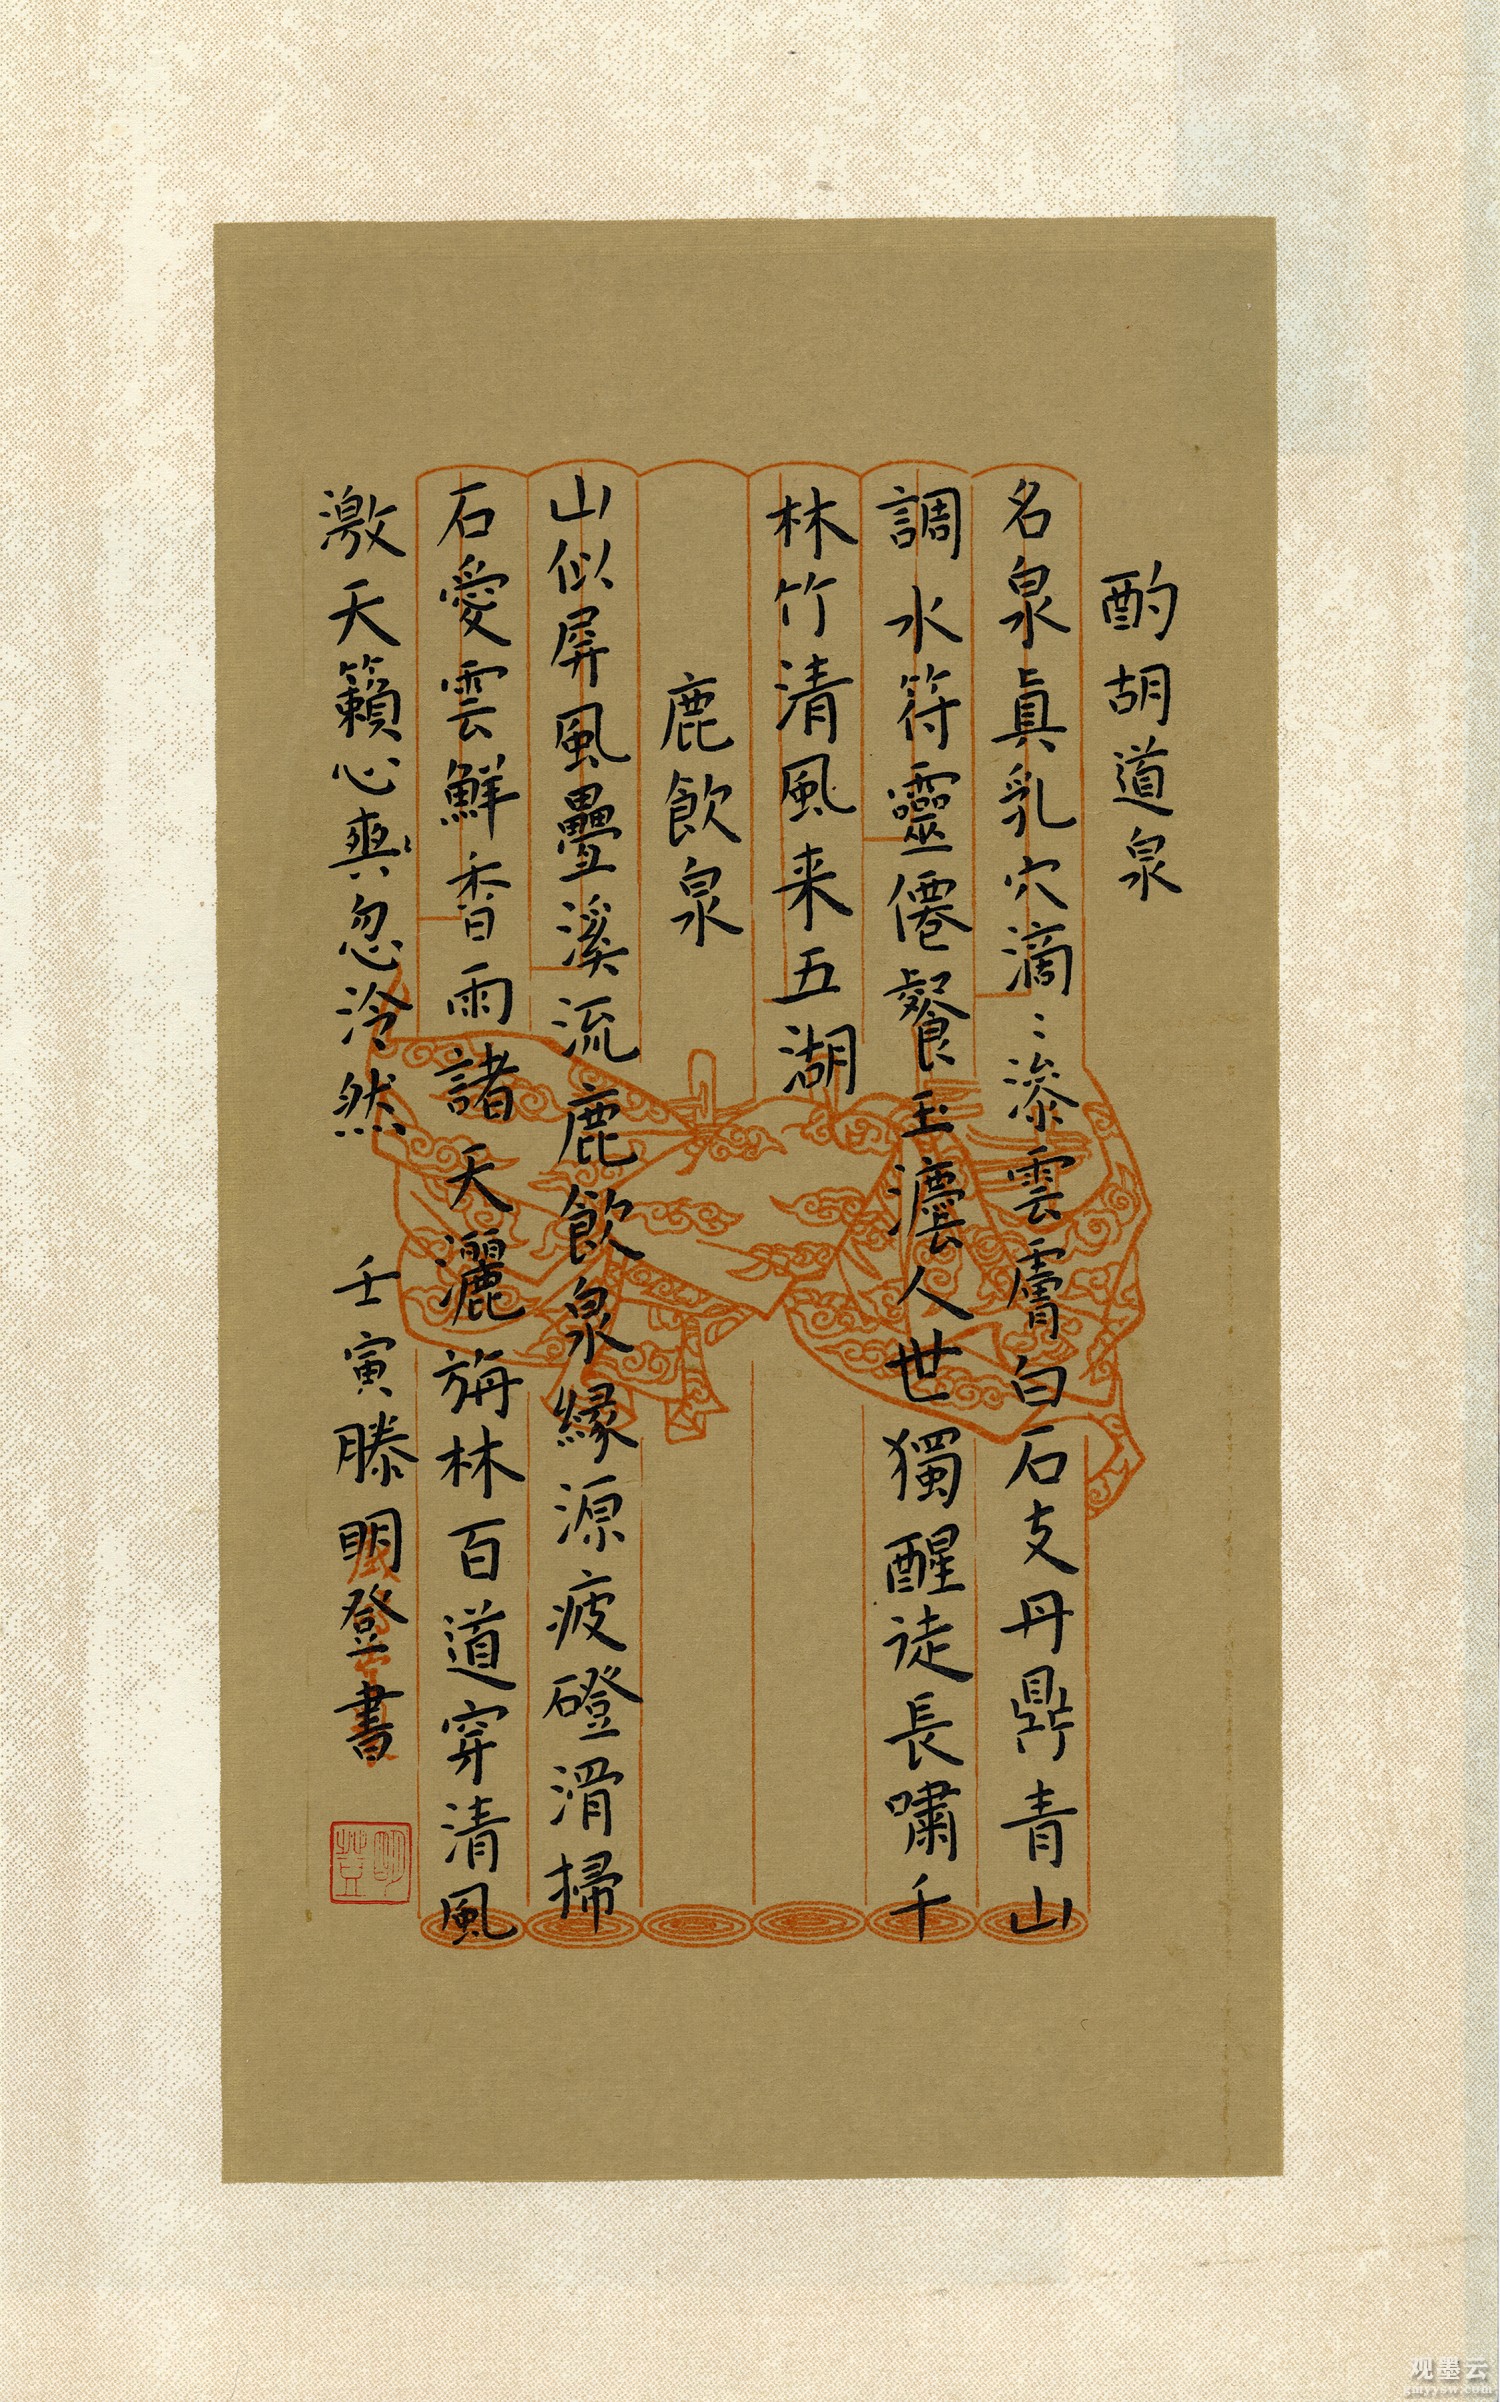 酌胡道泉
名泉真乳穴滴〻滲雲膚白石支丹鼎青山
調水符靈僊餐玉瀘人世獨醒徒長嘯千
林竹清風来五湖
鹿飲泉
山似屏風疊溪流鹿飲泉緣源疲磴滑掃
石愛雲鮮香雨諸天灑旃林百道穿清風
激天籟心爽忽泠然 壬寅滕明登書
观墨云
gmyysw.com